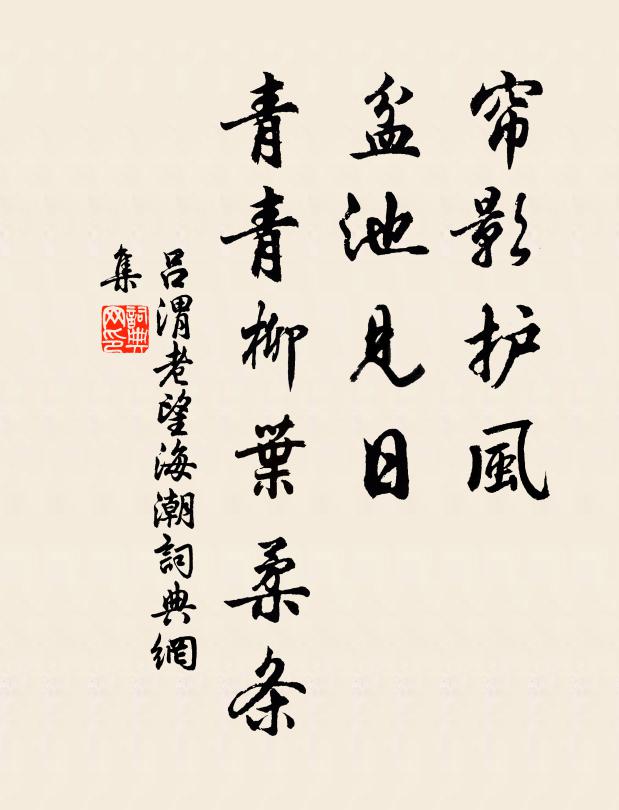 帘影护風
盆池見日
青青柳葉柔条
吕渭老望海潮詞典網
集
詞典网印